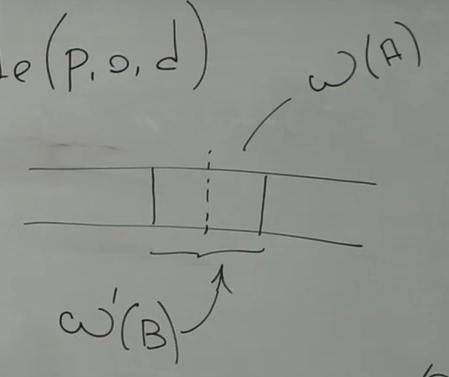 le(p,o,d)
ω(A)
ω'(B)